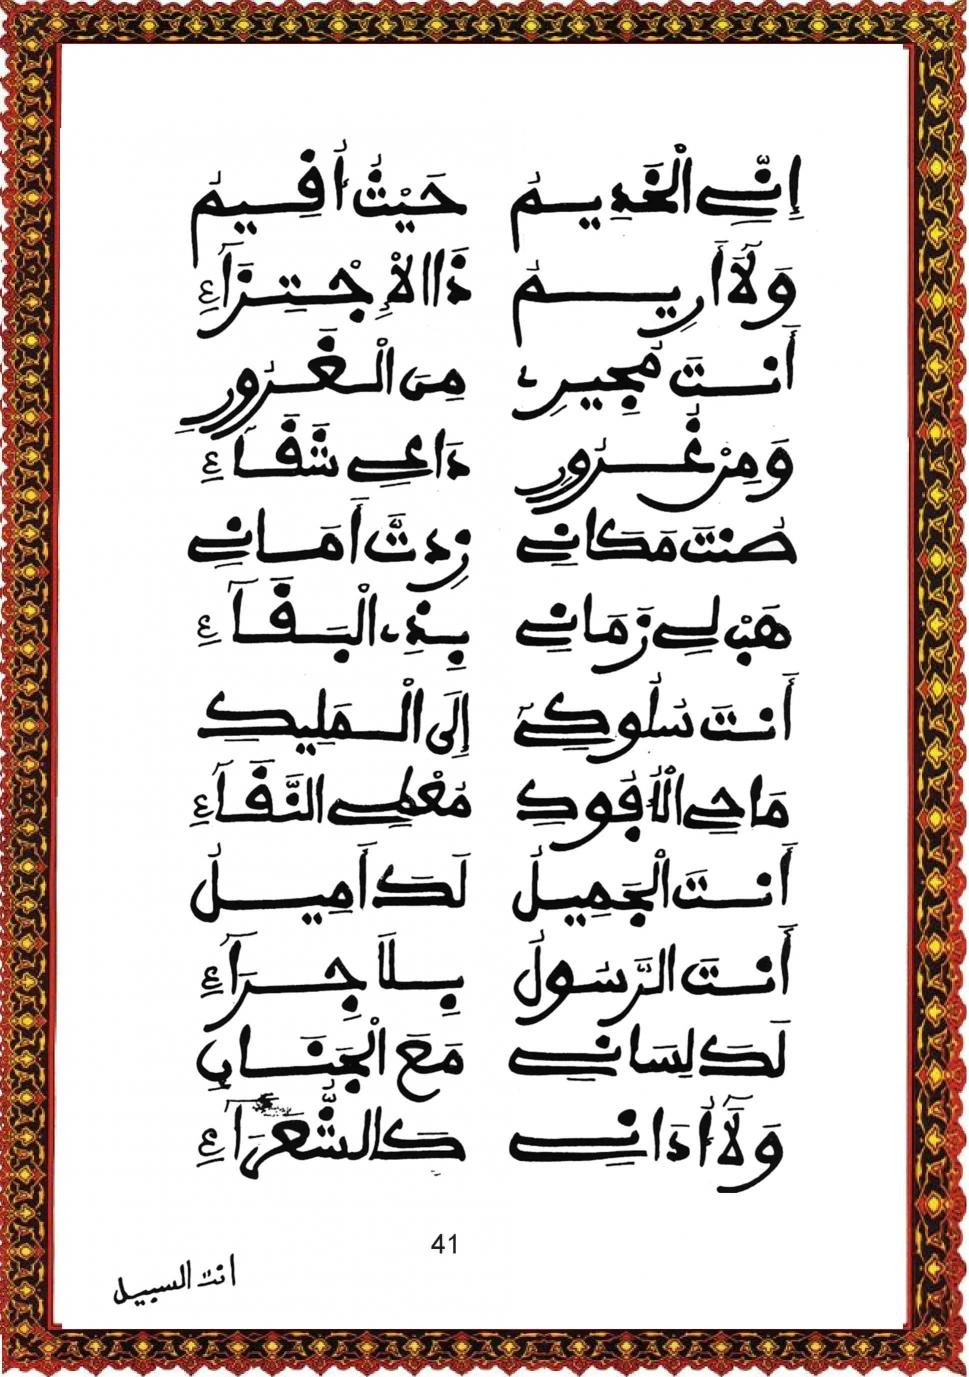 إِنِّي الْخَدِيمُ حَيْثُ أُقِيمُ
وَلَآ أَرِيمُ ذَا الْإِجْتِزَآءِ
أَنتَ مُجِيرِي مِنَ الْغَرُورِ
وَمِنْ غُرُورِ دَاعِي شَقَآءِ
صُنتَ مَكَانِي زِدتَّ أَمَانِي
هَبْ لِي زَمَانِي بِذِي الْبَقَآءِ
أَنتَ سُلُوكِيٓ إِلَى الْمَلِيكِ
مَاحِي الْأُفُوكِ مُعْطِي النَّقَآءِ
أَنتَ الْجَمِيلُ لَكَ أَمِيلُ
أَنتَ الرَّسُولُ بِلَا جِرَآءِ
لَكَ لِسَانِي مَعَ الْجَنَانِ
وَلَآ أُدَانِي كَالشُّعَرَآءِ
41
انت السبيل